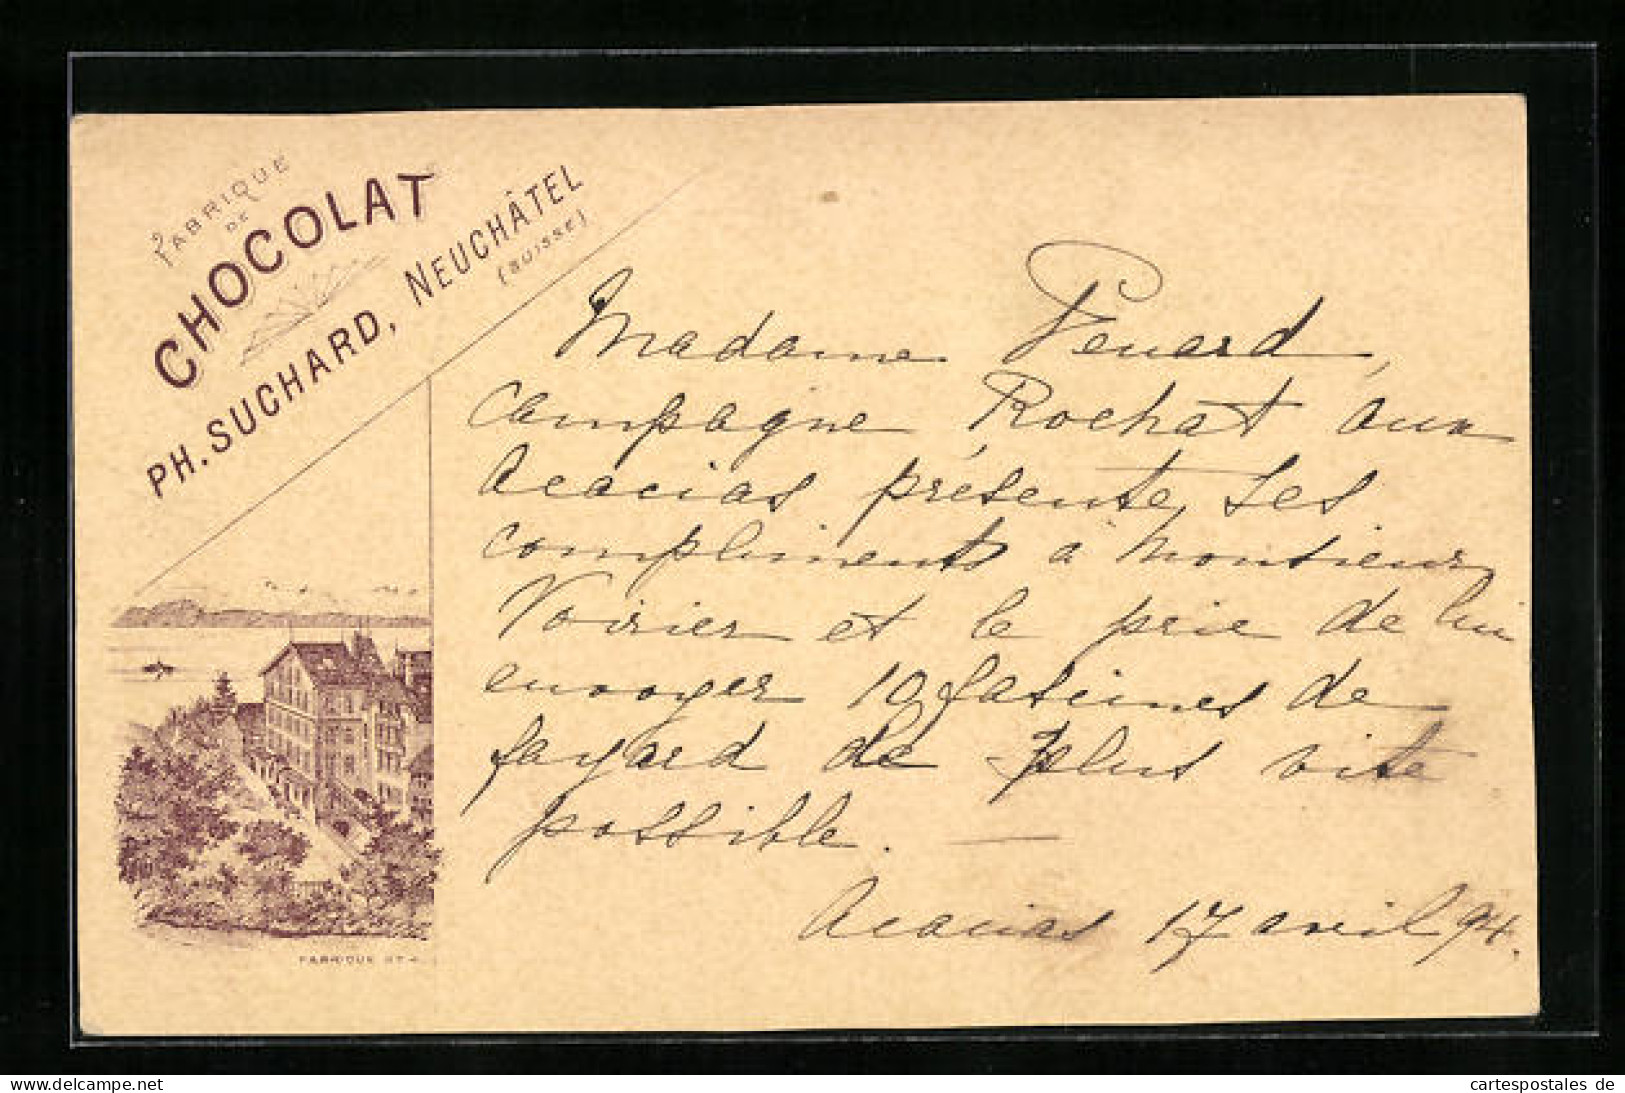 FABRIQUE
DE
CHOCOLAT
PH. SUCHARD, NEUCHÂTEL
(SUISSE)
Madame Penard,
campagne Rochat aux
Acacias présente ses
compliments à Monsieur
Voirier et le prie de lui
envoyer 10 fascines de
fayard le plus vite
possible. —
Acacias 17 avril 94.
FABRIQUE
delcampe.net
cartespostales de